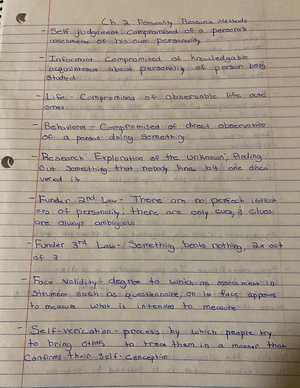 Ch. 2 Personality Research Methods
- Self judgement Compromised of a persons
assesment of his own personality
- Informant Compromised of knowledgable
about personality of person being
studied
- Life - Compromised of observable life out
comes
- Behavioral - Compromised of direct observation
of a person doing something
- Research: Exploration of the unknown; finding
out something that nobody knew b4 one discov
vered it
- Funder 2nd Law - There are no perfect indicat
ors of personality; there are only clues, & clues
are always ambiguous
- Funder 3rd Law - Something beats nothing, 2x out
of 3
- Face Validity - degree to which an assessment in
strument such as questionnaire, on its face appears
to measure what is intended to measure
- Self-verification - process by which people try
to bring others to treat them in a manner that
Confirms their Self-Conception